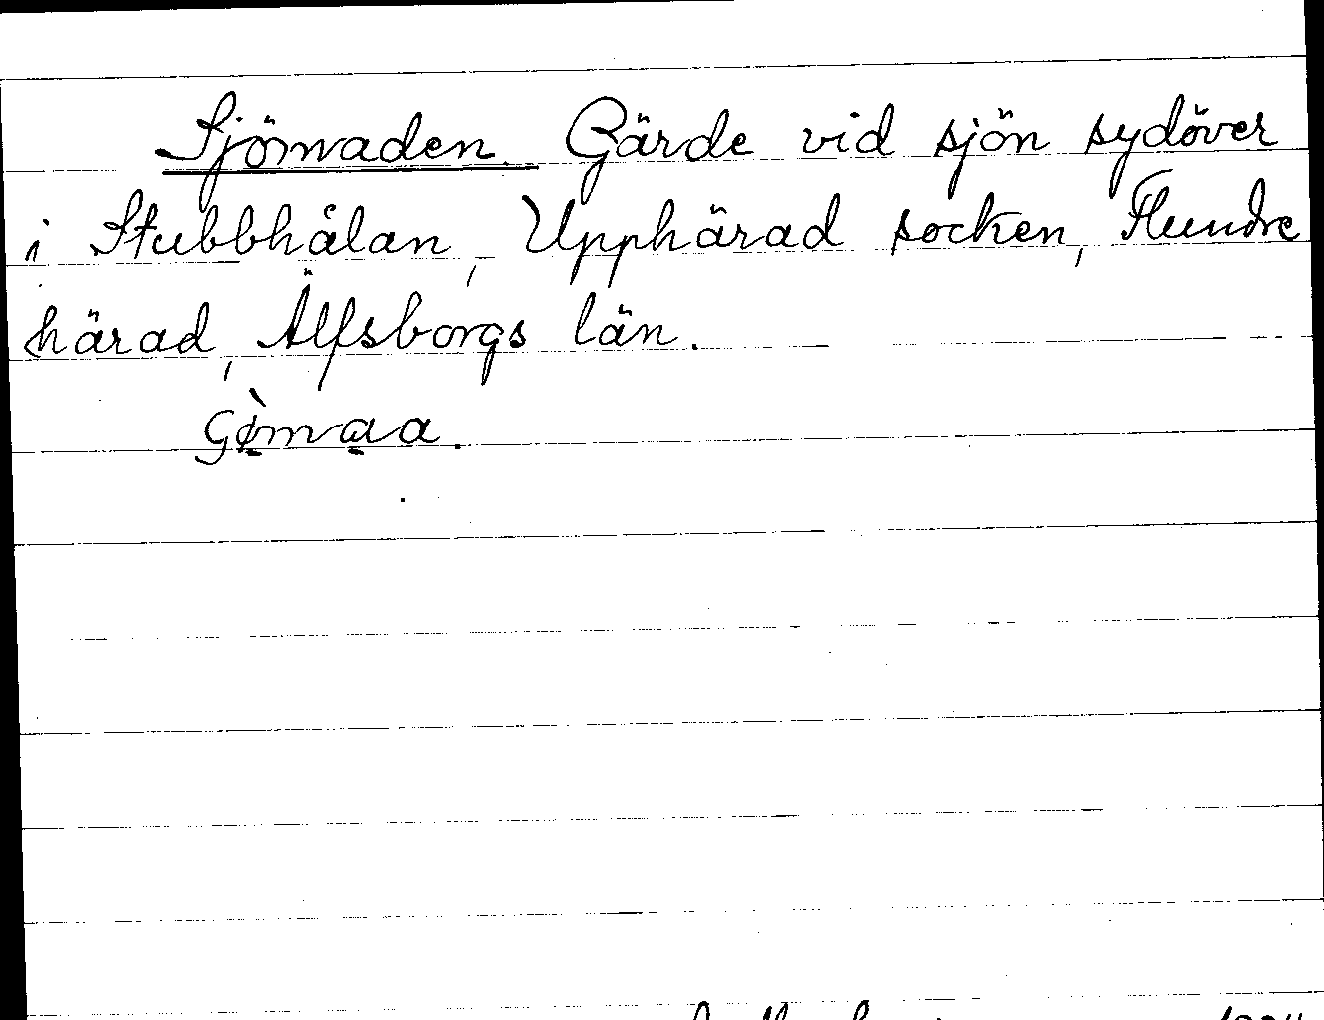 Sjömaden. Gärde vid sjön sydöver
i Stubbhålan, Upphärad socken, Flundre
härad, Älfsborgs län.